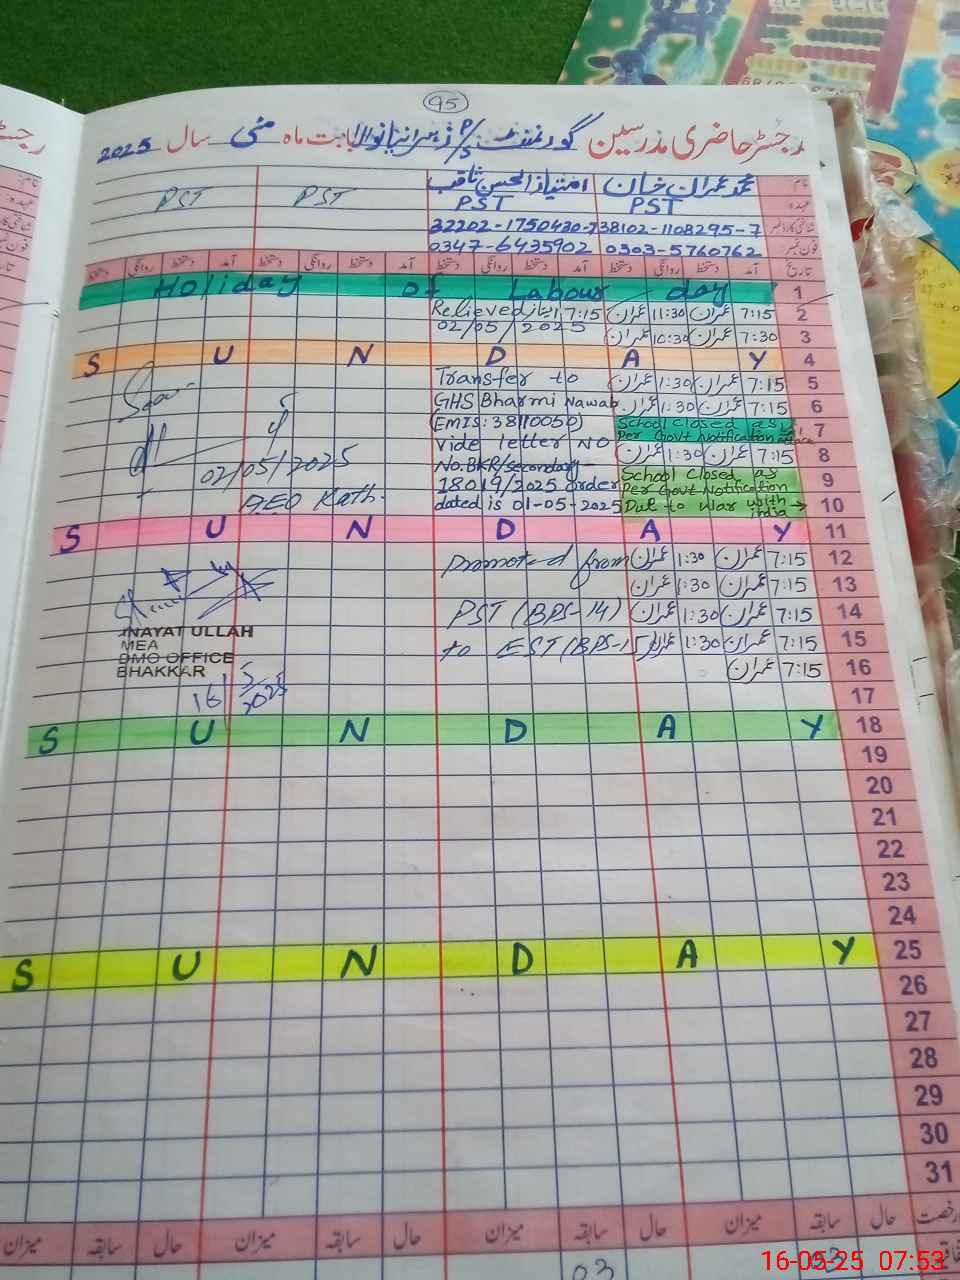 95
رجسٹر حاضری مدرسین گورنمنٹ P/S بابت ماہ مئی سال 2025
نام محمد عمران خان امتیاز الحسن ثاقب
عہدہ PST PST PST PST
شناختی کارڈ نمبر 38102-1108295-7 32202-1750430-7
فون نمبر 0303-5760762 0347-6435902
تاریخ آمد دستخط روانگی دستخط آمد دستخط روانگی دستخط آمد دستخط روانگی دستخط آمد دستخط روانگی دستخط
Holiday of Labour day 1
Relieved 7:15 عمران 11:30 عمران 7:15 2
02/05/2025 عمران 10:30 عمران 7:30 3
S U N D A Y 4
Transfer to عمران 1:30 عمران 7:15 5
GHS Bharmi Nawab عمران 1:30 عمران 7:15 6
(EMIS:38110050) School closed as per Govt Notification 7
Vide letter NO عمران 1:30 عمران 7:15 8
02/05/2025
No.BKR/secondary- School Closed as 9
18019/2025 order per Govt Notification
AEO
dated is 01-05-2025 Due to war with india → 10
S U N D A Y 11
promoted from عمران 1:30 عمران 7:15 12
عمران 1:30 عمران 7:15 13
PST (BPS-14) عمران 1:30 عمران 7:15 14
to EST (BPS-15) عمران 1:30 عمران 7:15 15
عمران 7:15 16
INAYAT ULLAH
MEA
DMO OFFICE
BHAKKAR
16/5/2025
17
S U N D A Y 18
19
20
21
22
23
24
S U N D A Y 25
26
27
28
29
30
31
رخصت حال سابقہ میزان حال سابقہ میزان حال سابقہ میزان حال سابقہ میزان
03 03
16-05-25 07:53